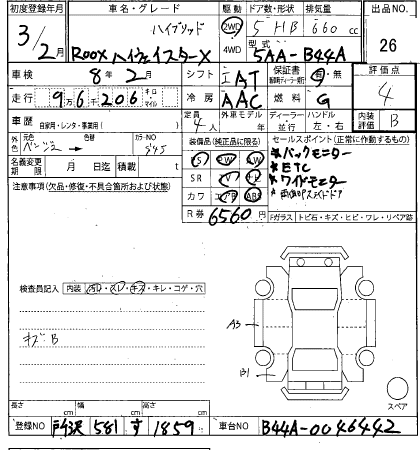 初度登録年月 車名・グレード 駆動 ドア数・形状 排気量 出品NO.
3/2月 ハイブリッド 2WD 5 HB 660 cc 26
ROOX ハイウェイスターX 4WD 型式 5AA-B44A
車検 8年2月 シフト IAT 保証書 有・無 評価点
走行 9万6千206 キロ マイル 冷房 AAC 燃料 G 4
車歴 自家用・レンタ・事業用( ) 定員 4人 外車モデル 年 ディーラー・並行 ハンドル 左・右 内装 B
外色 元色 色替 カラーNO 装備品(純正品に限る) セールスポイント(正常に作動するもの)
ベンジュー → 545 PS PW AW *バックモニター
名義変更期限 月 日迄 積載 t SR TV ナビ *ETC
注意事項(欠品・修復・不具合箇所および状態) カワ エアB ABS *ワイドモニター
R券 6560円 Fガラス トビ石・キズ・ヒビ・ワレ・リペア跡
検査員記入 内装 ヨゴレ・スレ・キズ・キレ・コゲ・穴
キズB A3
B1
スペア
長さ cm 幅 cm 高さ cm
登録NO 所沢 581 す 1859 車台NO B44A-0046442